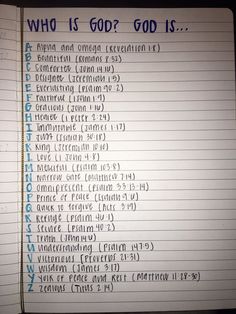 WHO IS GOD? GOD IS...
Alpha and Omega (Revelation 1:8)
Bountiful (Romans 8:32)
Comforter (John 14:16)
Designer (Jeremiah 1:5)
Everlasting (Psalm 90:2)
Faithful (1 John 1:9)
Gracious (John 1:16)
Healer (1 Peter 2:24)
Immutable (James 1:17)
Just (Isaiah 30:18)
King (Jeremiah 10:10)
Love (1 John 4:8)
Merciful (Psalm 103:8)
Narrow Gate (Matthew 7:14)
Omnipresent (Psalm 33:13-14)
Prince of Peace (Isaiah 9:6)
Quick to Forgive (Acts 3:19)
Refuge (Psalm 46:1)
Secure (Psalm 40:2)
Truth (John 14:6)
Understanding (Psalm 147:5)
Victorious (Proverbs 21:31)
Wisdom (James 3:17)
Yoke of Peace and Rest (Matthew 11:28-30)
Zealous (Titus 2:14)